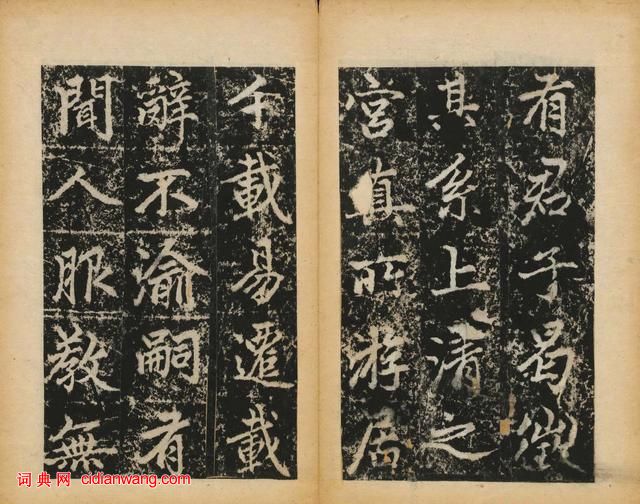 有君子曷徵
其系上清之
宮真所游居
千載易遷載
辭不渝嗣有
聞人服教無
词典网 cidianwang.com